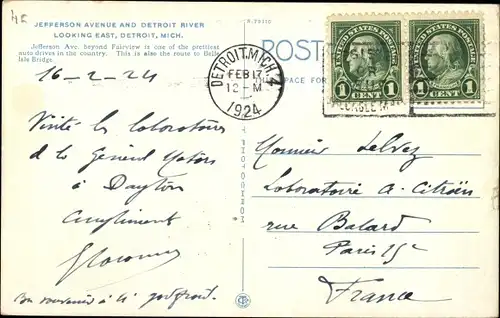 HE
JEFFERSON AVENUE AND DETROIT RIVER
LOOKING EAST, DETROIT, MICH.
Jefferson Ave. beyond Fairview is one of the prettiest
auto drives in the country. This is also the route to Belle
Isle Bridge.
16-2-24
Visité les laboratoires
de la General Motors
à Dayton
Compliments
Bon souvenir à
POST
PACE FOR
DETROIT, MICH.
FEB 17
12-M
1924
UNITED STATES POSTAGE
1 CENT 1
UNITED STATES POSTAGE
1 CENT 1
Monsieur
Laboratoire A. Citroën
rue Balard
Paris 15e
France